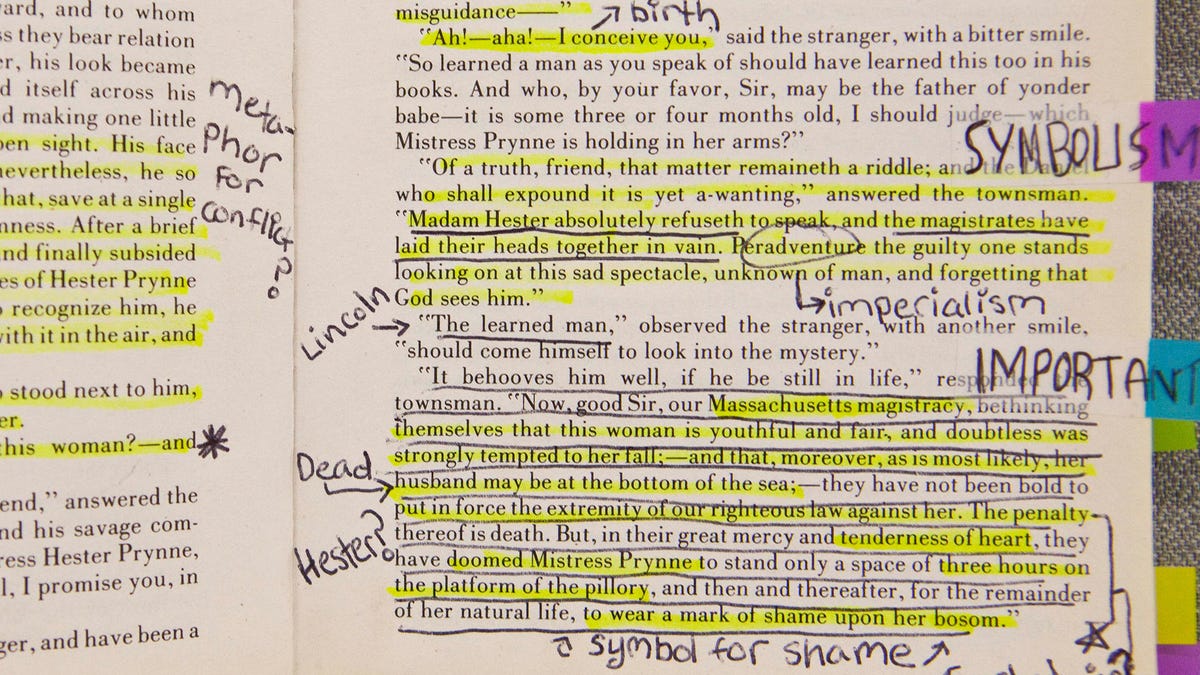 ard, and to whom
s they bear relation
er, his look became
d itself across his
d making one little
pen sight. His face
nevertheless, he so
hat, save at a single
nness. After a brief
nd finally subsided
es of Hester Prynne
recognize him, he
with it in the air, and
stood next to him,
er.
this woman?—and
end,” answered the
nd his savage com-
ress Hester Prynne,
l, I promise you, in
ger, and have been a
Meta-
phor
for
conflict?
misguidance——”
birth
“Ah!—aha!—I conceive you,” said the stranger, with a bitter smile.
“So learned a man as you speak of should have learned this too in his
books. And who, by your favor, Sir, may be the father of yonder
babe—it is some three or four months old, I should judge—which
Mistress Prynne is holding in her arms?”
SYMBOLISM
“Of a truth, friend, that matter remaineth a riddle; and the Daniel
who shall expound it is yet a-wanting,” answered the townsman.
“Madam Hester absolutely refuseth to speak, and the magistrates have
laid their heads together in vain. Peradventure the guilty one stands
looking on at this sad spectacle, unknown of man, and forgetting that
God sees him.”
imperialism
Lincoln
“The learned man,” observed the stranger, with another smile,
“should come himself to look into the mystery.”
IMPORTANT
“It behooves him well, if he be still in life,” responded the
townsman. “Now, good Sir, our Massachusetts magistracy, bethinking
themselves that this woman is youthful and fair, and doubtless was
strongly tempted to her fall;—and that, moreover, as is most likely, her
Dead
husband may be at the bottom of the sea;—they have not been bold to
put in force the extremity of our righteous law against her. The penalty
Hester?
thereof is death. But, in their great mercy and tenderness of heart, they
have doomed Mistress Prynne to stand only a space of three hours on
the platform of the pillory, and then and thereafter, for the remainder
of her natural life, to wear a mark of shame upon her bosom.”
symbol for shame